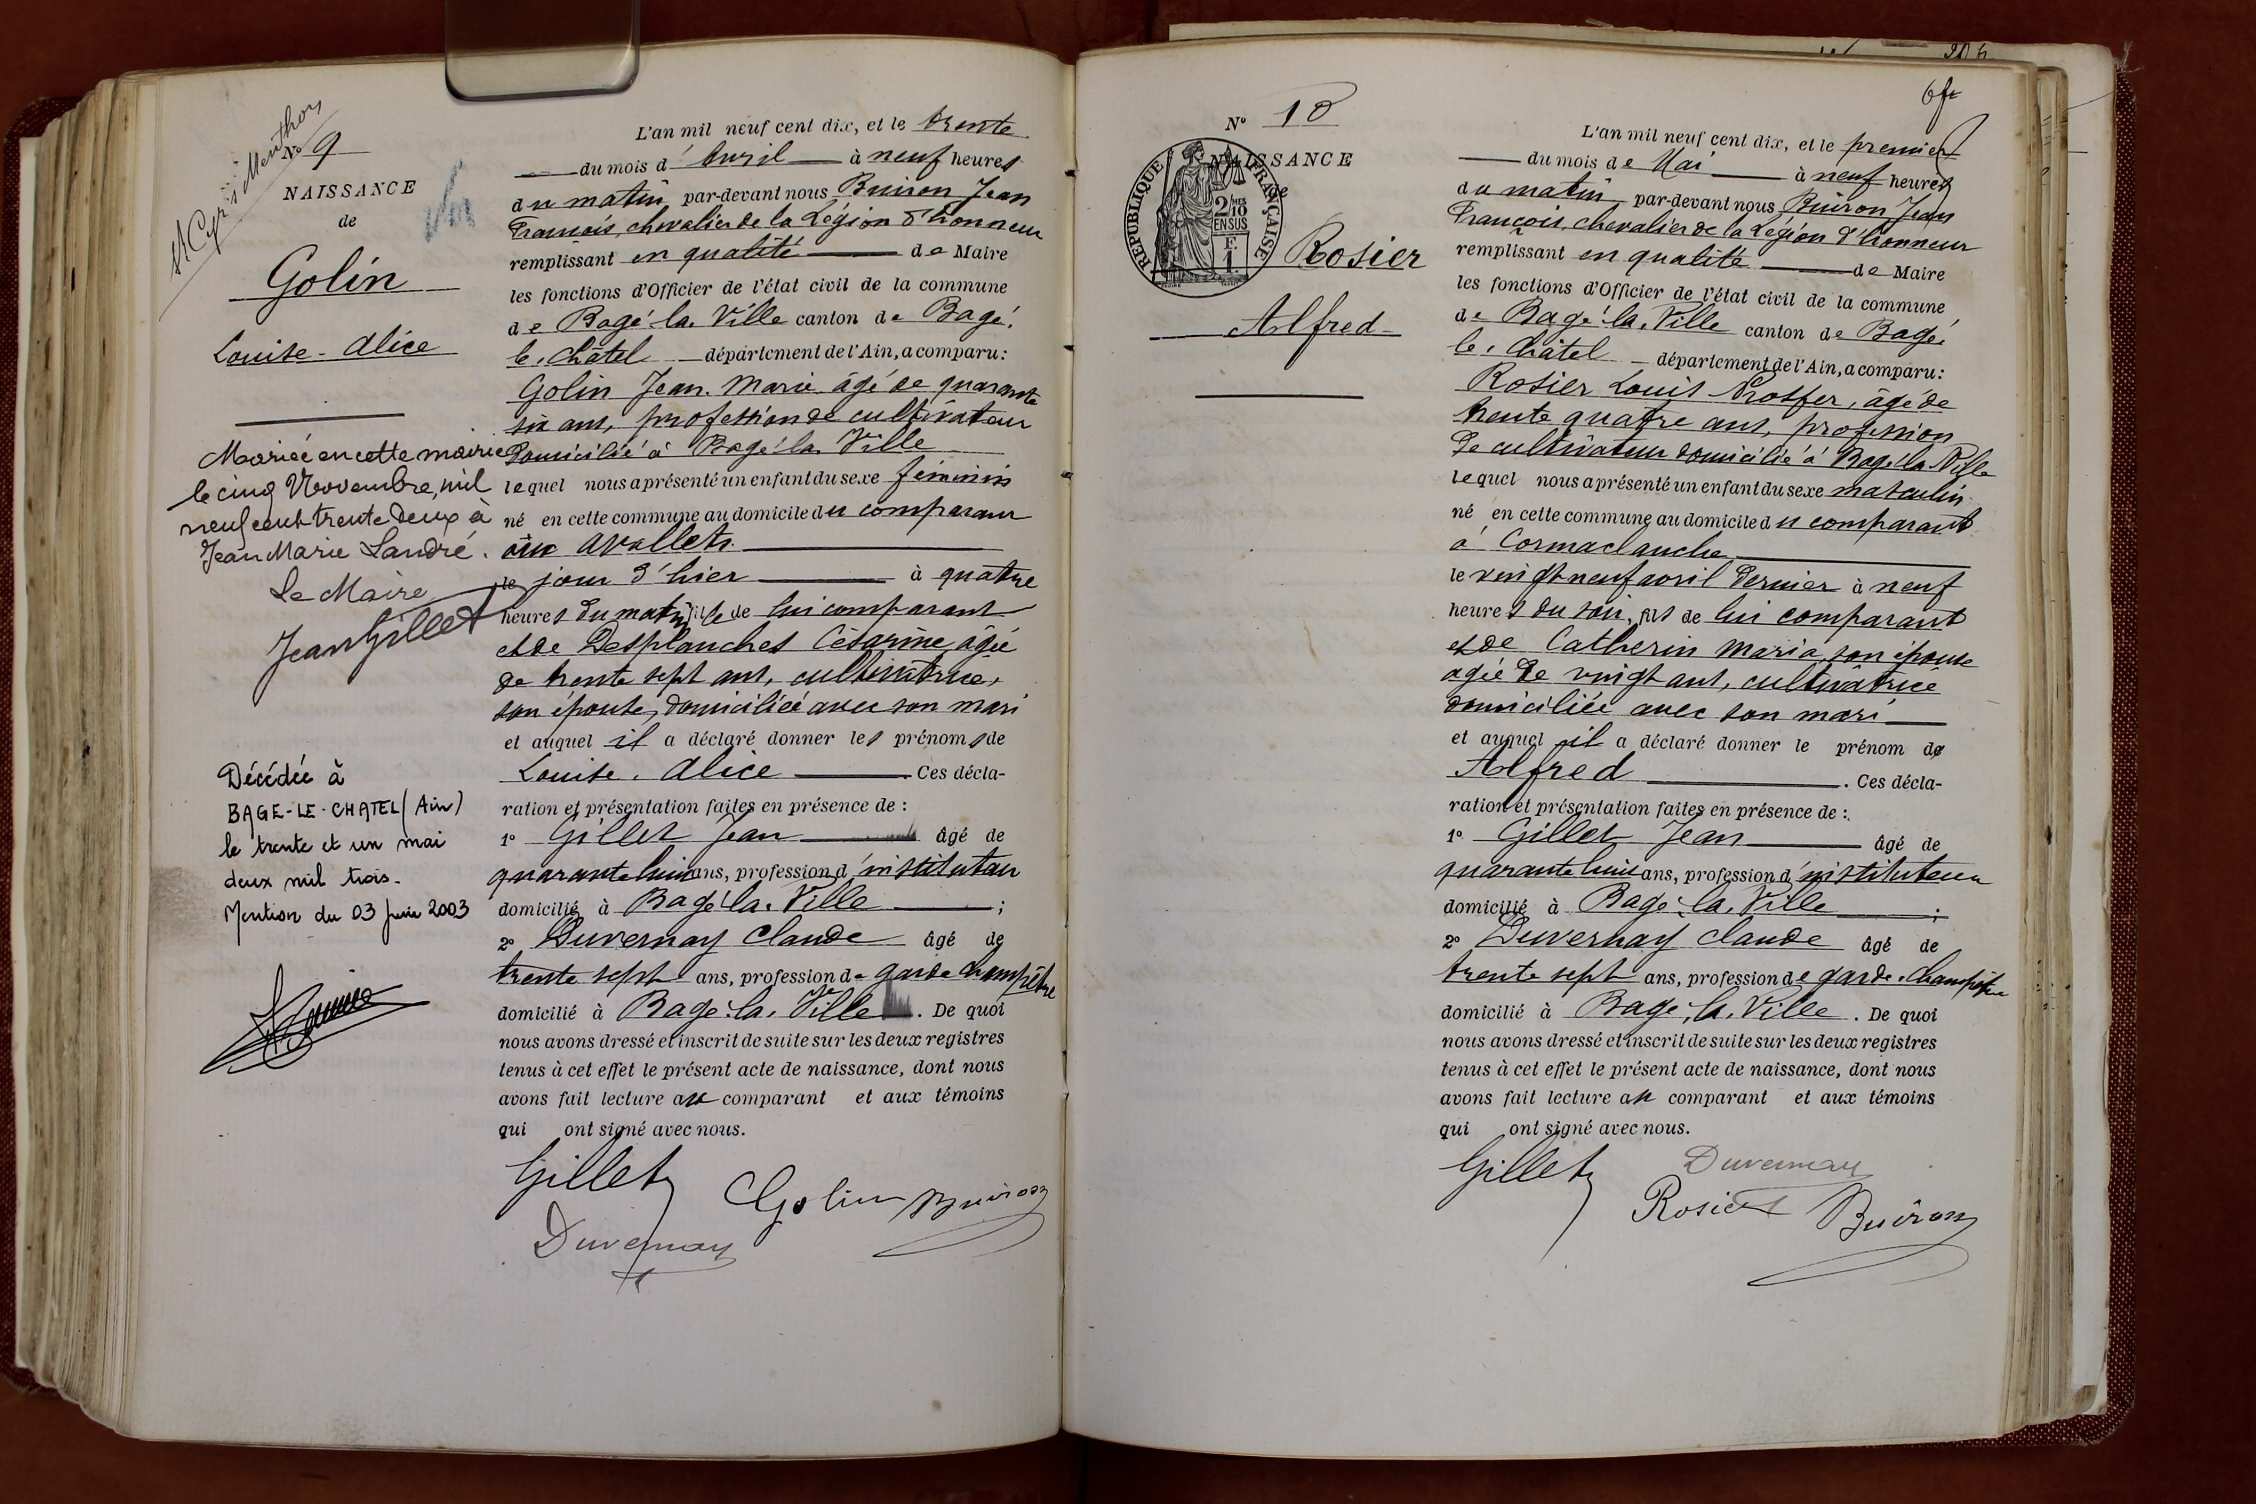 St Cyr s/ Menthon
No 9
NAISSANCE
de
Golin
Louise - Alice
Mariée en cette mairie
le cinq Novembre, mil
neuf cent trente deux à
Jean Marie Landré.
Le Maire
Jean Gillet
Décédée à
BAGE-LE-CHATEL (Ain)
le trente et un mai
deux mil trois.
Mention du 03 Juin 2003
L'an mil neuf cent dix, et le trente
du mois d'Avril à neuf heures
du matin par-devant nous Buiron Jean
François, chevalier de la Légion d'honneur
remplissant en qualité de Maire
les fonctions d'Officier de l'état civil de la commune
de Bagé-la-Ville canton de Bagé-
le-Châtel département de l'Ain, a comparu:
Golin Jean-Marie âgé de quarante
six ans, profession de cultivateur
domicilié à Bagé-la-Ville
lequel nous a présenté un enfant du sexe féminin
né en cette commune au domicile du comparant
aux Avollets
le jour d'hier à quatre
heures du matin fille de lui comparant
et de Desplanches Césarine, âgée
de trente sept ans, cultivatrice,
son épouse, domiciliée avec son mari
et auquel il a déclaré donner les prénoms de
Louise-Alice Ces décla-
ration et présentation faites en présence de :
1º Gillet Jean âgé de
quarante huit ans, profession d'instituteur
domicilié à Bagé-la-Ville ;
2º Duvernay Claude âgé de
trente sept ans, profession de garde champêtre
domicilié à Bagé-la-Ville. De quoi
nous avons dressé et inscrit de suite sur les deux registres
tenus à cet effet le présent acte de naissance, dont nous
avons fait lecture au comparant et aux témoins
qui ont signé avec nous.
Gillet Golin Buiron
Duvernay
No 10
NAISSANCE
de
RÉPUBLIQUE FRANÇAISE
2/10
EN SUS
F.
1.
Rosier
Alfred
L'an mil neuf cent dix, et le premier
du mois de Mai à neuf heures
du matin par-devant nous Buiron Jean
François, chevalier de la Légion d'honneur
remplissant en qualité de Maire
les fonctions d'Officier de l'état civil de la commune
de Bagé-la-Ville canton de Bagé-
le-Châtel département de l'Ain, a comparu:
Rosier Louis Prosper, âgé de
trente quatre ans, profession
de cultivateur domicilié à Bagé-la-Ville
lequel nous a présenté un enfant du sexe masculin
né en cette commune au domicile du comparant
à Cormaclanche
le vingt neuf avril dernier à neuf
heures du soir, fils de lui comparant
et de Catherin Maria son épouse
agée de vingt ans, cultivatrice
domiciliée avec son mari
et auquel il a déclaré donner le prénom de
Alfred. Ces décla-
ration et présentation faites en présence de :
1º Gillet Jean âgé de
quarante huit ans, profession d'instituteur
domicilié à Bagé-la-Ville ;
2º Duvernay Claude âgé de
trente sept ans, profession de garde-champêtre
domicilié à Bagé-la-Ville. De quoi
nous avons dressé et inscrit de suite sur les deux registres
tenus à cet effet le présent acte de naissance, dont nous
avons fait lecture au comparant et aux témoins
qui ont signé avec nous.
Gillet Duvernay
Rosier Buiron